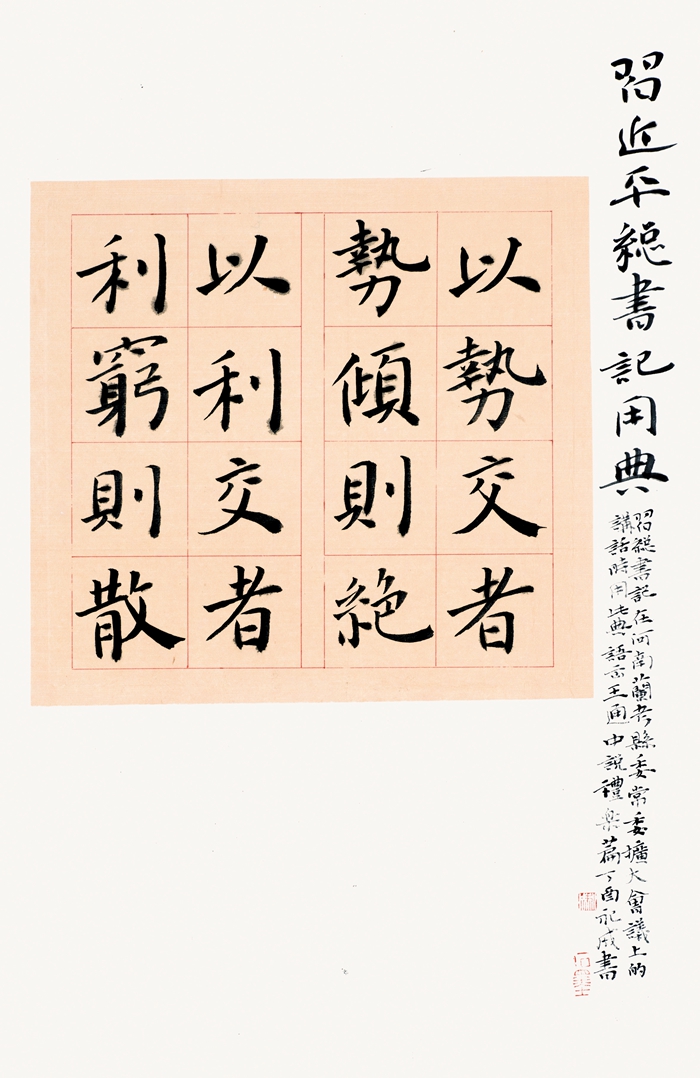 習近平緫書記用典
習緫書記在河南蘭考縣委常委擴大會議上的
講話時用此典語出王通中說禮楽篇丁酉成書
以勢交者
勢傾則絶
以利交者
利窮則散